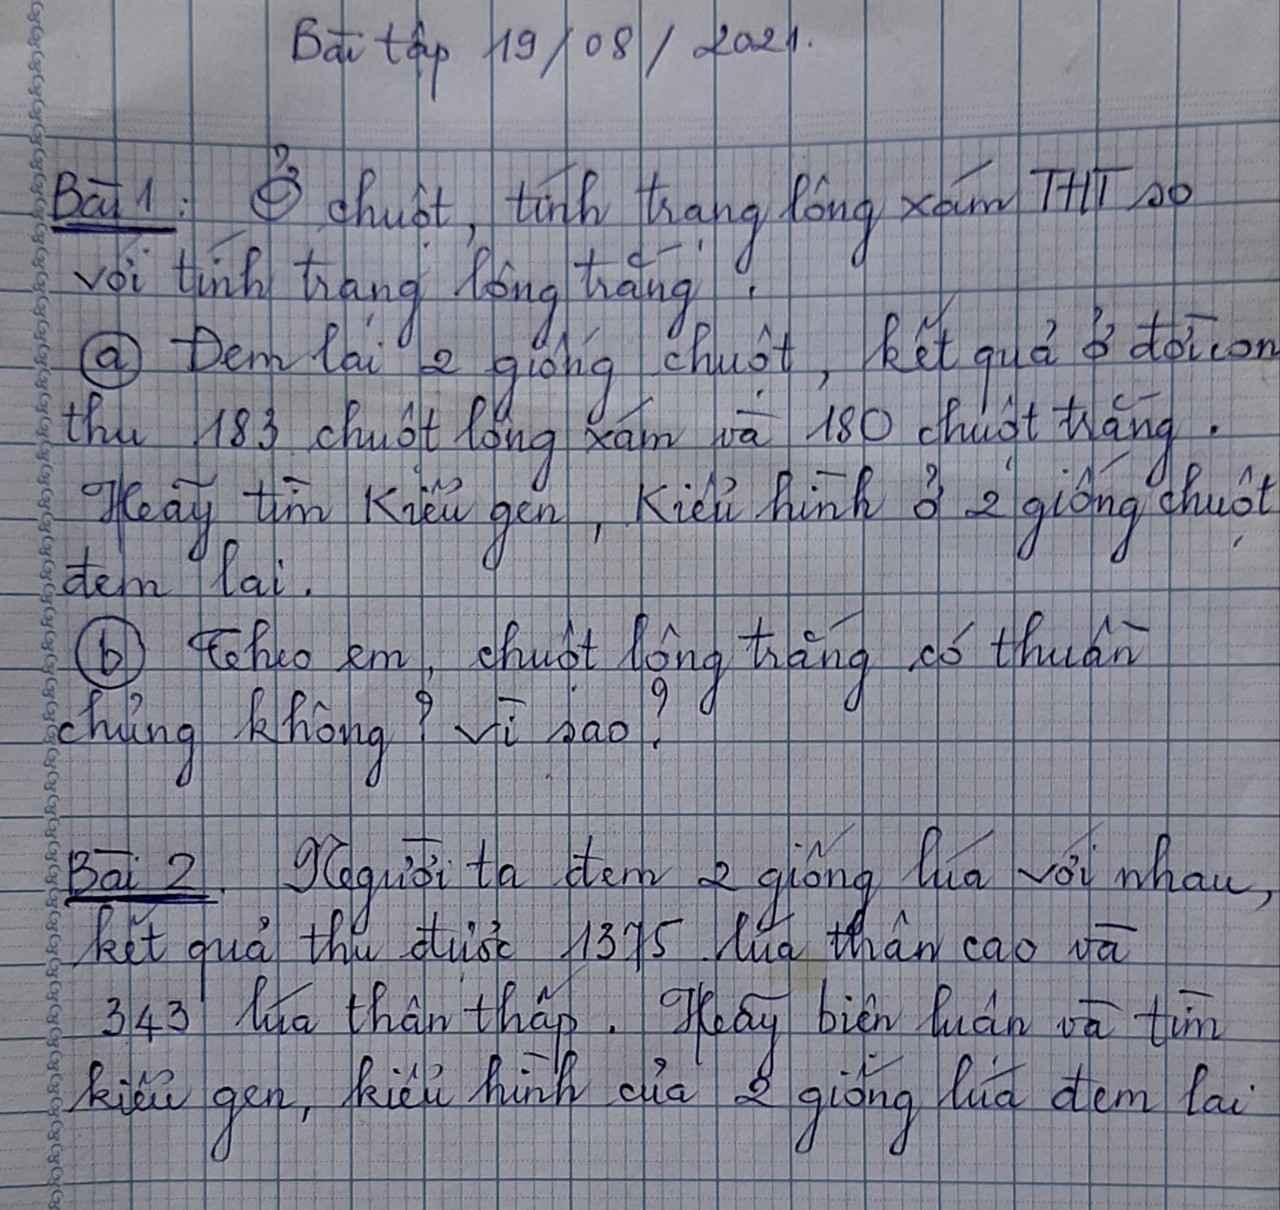 Bài tập 19/08/2021.
Bài 1: Ở chuột, tính trạng lông xám THT so
với tính trạng lông trắng.
a) Đem lai 2 giống chuột, kết quả ở đời con
thu 183 chuột lông xám và 180 chuột trắng.
Hãy tìm kiểu gen, kiểu hình ở 2 giống chuột
đem lai.
b) Theo em, chuột lông trắng có thuần
chủng không? Vì sao?
Bài 2. Người ta đem 2 giống lúa với nhau,
kết quả thu được 1375 lúa thân cao và
343 lúa thân thấp. Hãy biện luận và tìm
kiểu gen, kiểu hình của 2 giống lúa đem lai